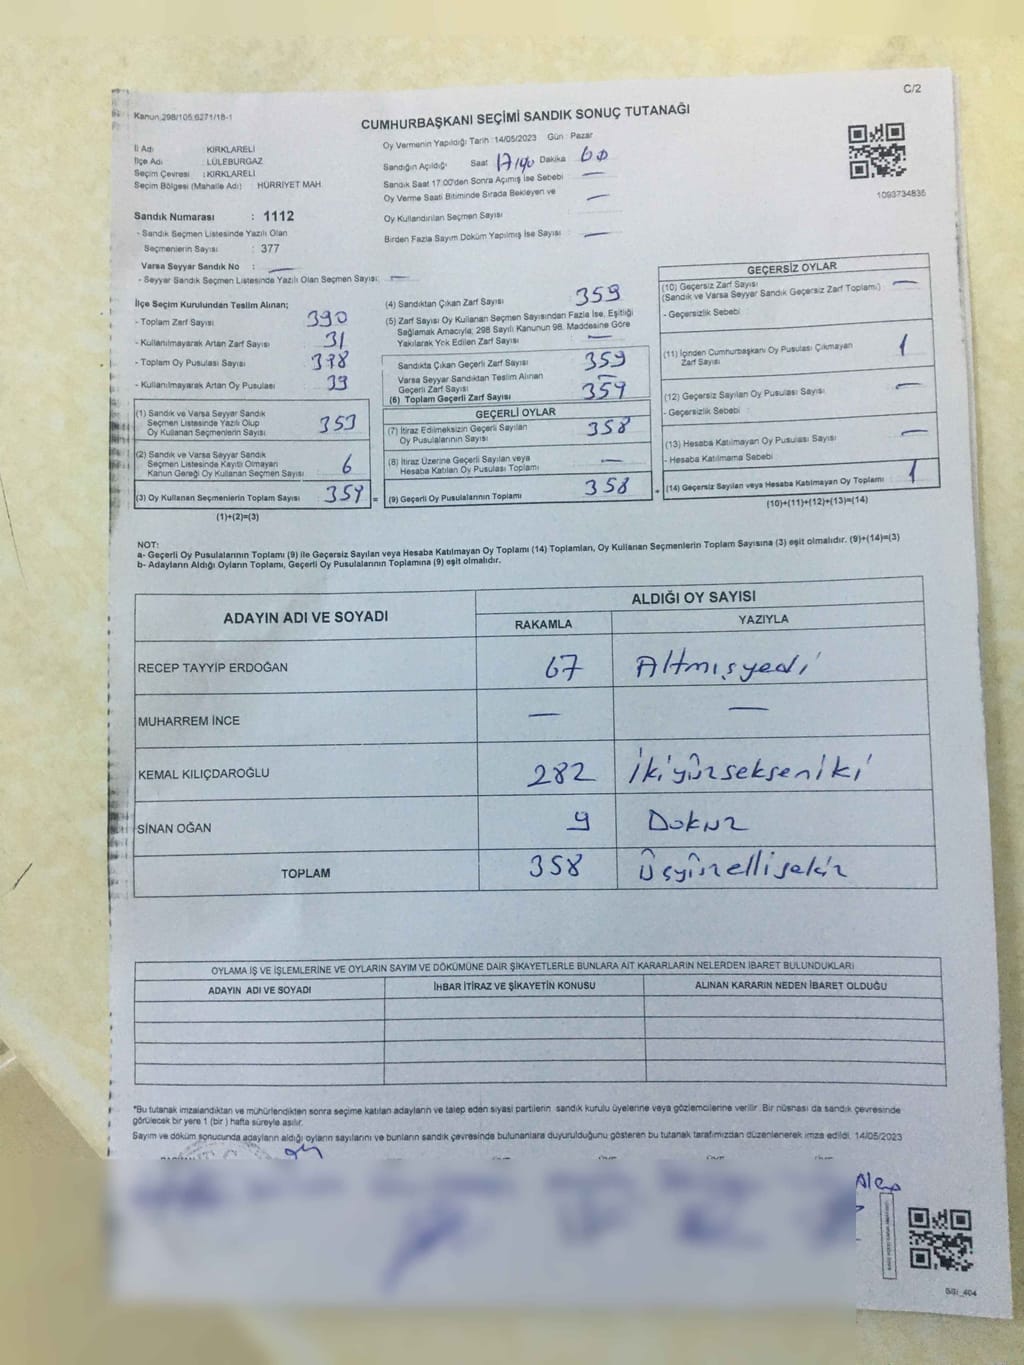 C/2
Kanun.298/105;6271/18-1
CUMHURBAŞKANI SEÇİMİ SANDIK SONUÇ TUTANAĞI
İl Adı : KIRKLARELİ
İlçe Adı : LÜLEBURGAZ
Seçim Çevresi : KIRKLARELİ
Seçim Bölgesi (Mahalle Adı) : HÜRRİYET MAH.
Sandık Numarası : 1112
- Sandık Seçmen Listesinde Yazılı Olan
Seçmenlerin Sayısı : 377
Varsa Seyyar Sandık No : —
- Seyyar Sandık Seçmen Listesinde Yazılı Olan Seçmen Sayısı: —
Oy Vermenin Yapıldığı Tarih : 14/05/2023 Gün : Pazar
Sandığın Açıldığı Saat Dakika
Sandık Saat 17:00'den Sonra Açımış İse Sebebi —
Oy Verme Saati Bitiminde Sırada Bekleyen ve —
Oy Kullandırılan Seçmen Sayısı
Birden Fazla Sayım Döküm Yapılmış İse Sayısı —
1093734835
İlçe Seçim Kurulundan Teslim Alınan;
- Toplam Zarf Sayısı 390
- Kullanılmayarak Artan Zarf Sayısı 31
- Toplam Oy Pusulası Sayısı
- Kullanılmayarak Artan Oy Pusulası
(1) Sandık ve Varsa Seyyar Sandık
Seçmen Listesinde Yazılı Olup
Oy Kullanan Seçmenlerin Sayısı 353
(2) Sandık ve Varsa Seyyar Sandık
Seçmen Listesinde Kayıtlı Olmayan
Kanun Gereği Oy Kullanan Seçmen Sayısı 6
(3) Oy Kullanan Seçmenlerin Toplam Sayısı 359 =
(1)+(2)=(3)
(4) Sandıktan Çıkan Zarf Sayısı 359
(5) Zarf Sayısı Oy Kullanan Seçmen Sayısından Fazla İse, Eşitliği
Sağlamak Amacıyla; 298 Sayılı Kanunun 98. Maddesine Göre
Yakılarak Yok Edilen Zarf Sayısı —
Sandıkta Çıkan Geçerli Zarf Sayısı 359
Varsa Seyyar Sandıktan Teslim Alınan
Geçerli Zarf Sayısı —
(6) Toplam Geçerli Zarf Sayısı 359
GEÇERLİ OYLAR
(7) İtiraz Edilmeksizin Geçerli Sayılan
Oy Pusulalarının Sayısı 358
(8) İtiraz Üzerine Geçerli Sayılan veya
Hesaba Katılan Oy Pusulası Toplamı —
(9) Geçerli Oy Pusulalarının Toplamı 358 +
GEÇERSİZ OYLAR
(10) Geçersiz Zarf Sayısı —
(Sandık ve Varsa Seyyar Sandık Geçersiz Zarf Toplamı)
- Geçersizlik Sebebi
(11) İçinden Cumhurbaşkanı Oy Pusulası Çıkmayan
Zarf Sayısı 1
(12) Geçersiz Sayılan Oy Pusulası Sayısı —
- Geçersizlik Sebebi
(13) Hesaba Katılmayan Oy Pusulası Sayısı —
- Hesaba Katılmama Sebebi
(14) Geçersiz Sayılan veya Hesaba Katılmayan Oy Toplamı 1
(10)+(11)+(12)+(13)=(14)
NOT:
a- Geçerli Oy Pusulalarının Toplamı (9) ile Geçersiz Sayılan veya Hesaba Katılmayan Oy Toplamı (14) Toplamları, Oy Kullanan Seçmenlerin Toplam Sayısına (3) eşit olmalıdır. (9)+(14)=(3)
b- Adayların Aldığı Oyların Toplamı, Geçerli Oy Pusulalarının Toplamına (9) eşit olmalıdır.
ADAYIN ADI VE SOYADI ALDIĞI OY SAYISI
RAKAMLA YAZIYLA
RECEP TAYYİP ERDOĞAN 67 Altmışyedi
MUHARREM İNCE — —
KEMAL KILIÇDAROĞLU 282 İkiyüzsekseniki
SİNAN OĞAN 9 Dokuz
TOPLAM 358 Üçyüzellisekiz
OYLAMA İŞ VE İŞLEMLERİNE VE OYLARIN SAYIM VE DÖKÜMÜNE DAİR ŞİKAYETLERLE BUNLARA AİT KARARLARIN NELERDEN İBARET BULUNDUKLARI
ADAYIN ADI VE SOYADI İHBAR İTİRAZ VE ŞİKAYETİN KONUSU ALINAN KARARIN NEDEN İBARET OLDUĞU
*Bu tutanak imzalandıktan ve mühürlendikten sonra seçime katılan adayların ve talep eden siyasi partilerin sandık kurulu üyelerine veya gözlemcilerine verilir. Bir nüshası da sandık çevresinde
görülecek bir yere 1 (bir) hafta süreyle asılır.
Sayım ve döküm sonucunda adayların aldığı oyların sayılarını ve bunların sandık çevresinde bulunanlara duyurulduğunu gösteren bu tutanak tarafımızdan düzenlenerek imza edildi. 14/05/2023